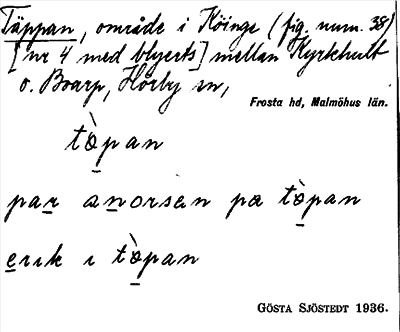 Täppan, område i Köinge (fig. num. 38)
[nr 4 med blyerts] mellan Kyrkhult
o. Boarp, Hörby sn,
Frosta hd, Malmöhus län.
tòpan
par anorsän pa tòpan
erik i tòpan
GÖSTA SJÖSTEDT 1936.